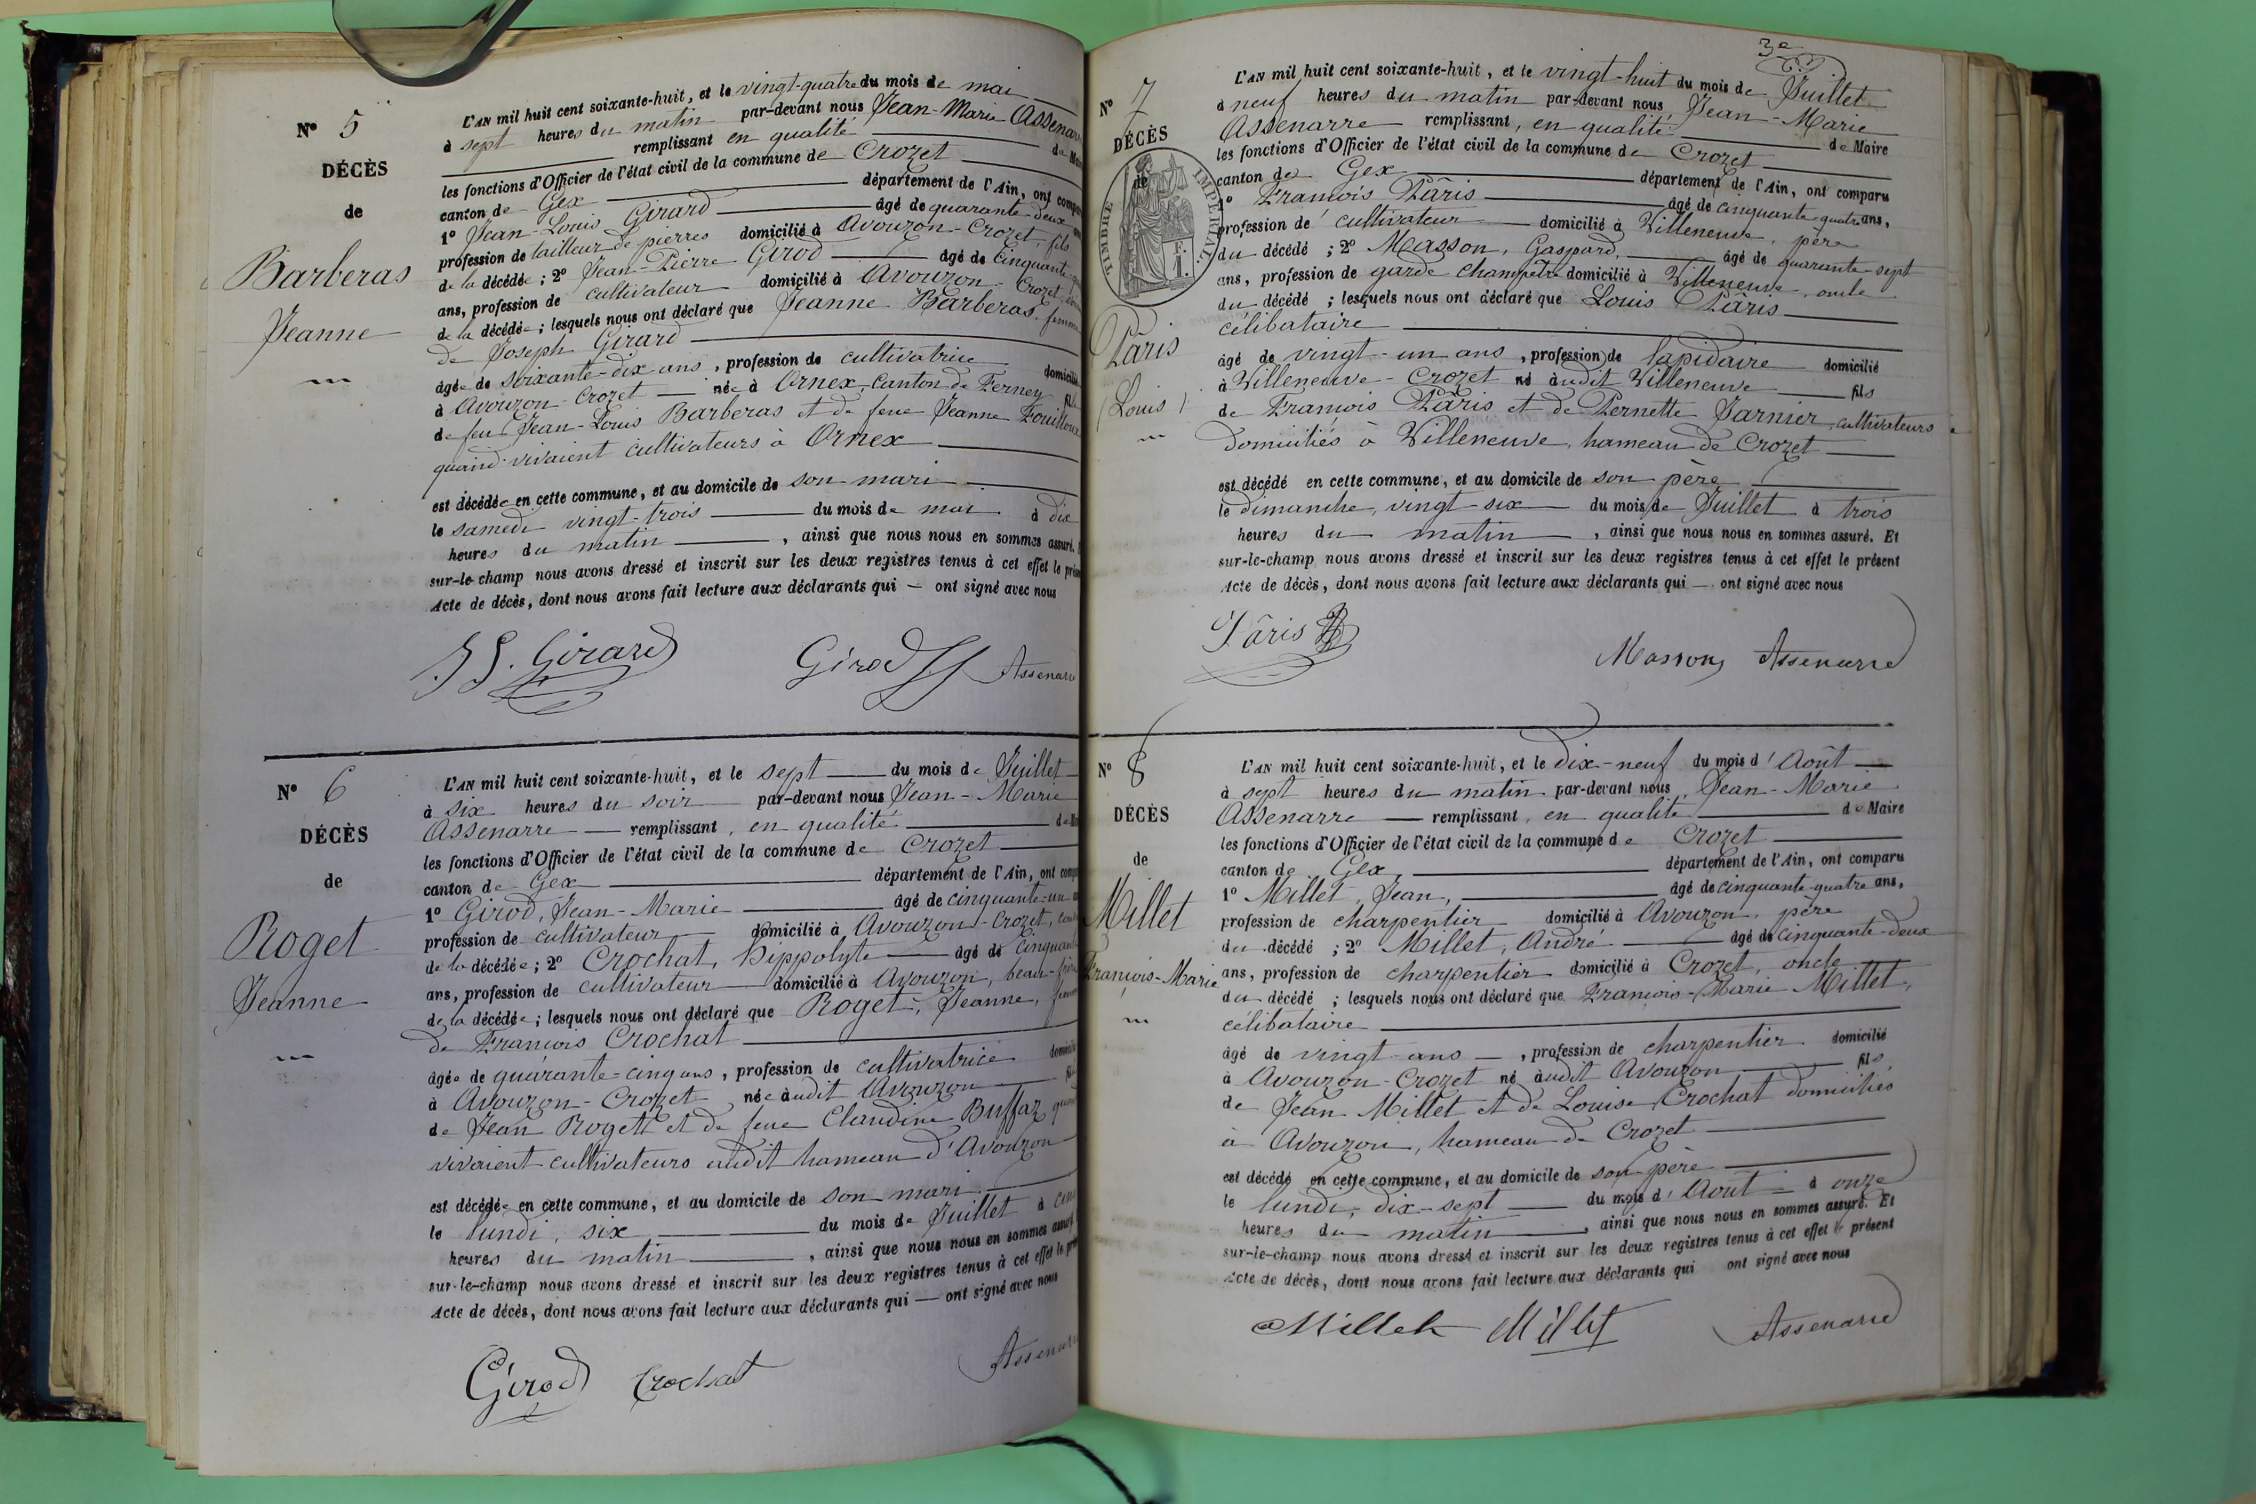 N° 5
DÉCÈS
de
Barberas
Jeanne
L'AN mil huit cent soixante-huit, et le vingt-quatre du mois de mai
à sept heures du matin par-devant nous Jean-Marie Assenar
remplissant en qualité de Maire
les fonctions d'Officier de l'état civil de la commune de Crozet
canton de Gex département de l'Ain, ont compa
1° Jean-Louis Girard âgé de quarante-deux
profession de tailleur de pierres domicilié à Avouzon-Crozet, fils
de la décédée ; 2° Jean-Pierre Girod âgé de cinquante
ans, profession de cultivateur domicilié à Avouzon-Crozet
de la décédée ; lesquels nous ont déclaré que Jeanne Barberas, femme
de Joseph Girard
âgée de soixante-dix ans, profession de cultivatrice domicilié
à Avouzon-Crozet née à Ornex, canton de Ferney fil
de feu Jean-Louis Barberas et de feue Jeanne Fouilloux
quand vivaient cultivateurs à Ornex
est décédée en cette commune, et au domicile de son mari
le samedi vingt-trois du mois de mai à dix
heures du matin, ainsi que nous nous en sommes assuré.
sur-le-champ nous avons dressé et inscrit sur les deux registres tenus à cet effet le présen
Acte de décès, dont nous avons fait lecture aux déclarants qui — ont signé avec nous
J L. Girard Girod Assenarre
N° 6
DÉCÈS
de
Roget
Jeanne
L'AN mil huit cent soixante-huit, et le sept du mois de Juillet
à six heures du soir par-devant nous Jean-Marie
Assenarre remplissant, en qualité de Mai
les fonctions d'Officier de l'état civil de la commune de Crozet
canton de Gex département de l'Ain, ont comp
1° Girod, Jean-Marie âgé de cinquante-un
profession de cultivateur domicilié à Avouzon-Crozet,
de la décédée ; 2° Crochat, Hippolyte âgé de cinquante
ans, profession de cultivateur domicilié à Avouzon, beau-frère
de la décédée ; lesquels nous ont déclaré que Roget, Jeanne, femme
de François Crochat
âgée de quarante-cinq ans, profession de cultivatrice domicilié
à Avouzon-Crozet née àudit Avouzon fil
de Jean Rogett et de feue Claudine Buffaz quand
vivaient cultivateurs audit hameau d'Avouzon
est décédée en cette commune, et au domicile de son mari
le lundi, six du mois de Juillet à cinq
heures du matin, ainsi que nous nous en sommes assuré
sur-le-champ nous avons dressé et inscrit sur les deux registres tenus à cet effet le pré
Acte de décès, dont nous avons fait lecture aux déclarants qui — ont signé avec nous
Girod Crochat Assenarre
3e
N° 7
DÉCÈS
de
TIMBRE IMPÉRIAL
F.
1.
Pâris
(Louis)
L'AN mil huit cent soixante-huit, et le vingt-huit du mois de Juillet
à neuf heures du matin par-devant nous, Jean-Marie
Assenarre remplissant, en qualité de Maire
les fonctions d'Officier de l'état civil de la commune de Crozet
canton de Gex département de l'Ain, ont comparu
1° François Pâris âgé de cinquante-quatre ans,
profession de cultivateur domicilié à Villeneuve, père
du décédé ; 2° Masson, Gaspard, âgé de quarante-sept
ans, profession de garde champêtre domicilié à Villeneuve, oncle
du décédé ; lesquels nous ont déclaré que Louis Pâris
célibataire
âgé de vingt-un ans, profession de lapidaire domicilié
à Villeneuve-Crozet né àudit Villeneuve fils
de François Pâris et de Pernette Jarnier, cultivateurs
domiciliés à Villeneuve, hameau de Crozet
est décédé en cette commune, et au domicile de son père
le dimanche, vingt-six du mois de Juillet à trois
heures du matin, ainsi que nous nous en sommes assuré. Et
sur-le-champ nous avons dressé et inscrit sur les deux registres tenus à cet effet le présent
Acte de décès, dont nous avons fait lecture aux déclarants qui — ont signé avec nous
Pâris Masson Assenarre
N° 8
DÉCÈS
de
Millet
François-Marie
L'AN mil huit cent soixante-huit, et le dix-neuf du mois d'Août
à sept heures du matin par-devant nous, Jean-Marie
Assenarre remplissant, en qualité de Maire
les fonctions d'Officier de l'état civil de la commune de Crozet
canton de Gex, département de l'Ain, ont comparu
1° Millet, Jean, âgé de cinquante-quatre ans,
profession de charpentier domicilié à Avouzon, père
du décédé ; 2° Millet, André âgé de cinquante-deux
ans, profession de charpentier domicilié à Crozet, oncle
du décédé ; lesquels nous ont déclaré que François-Marie Millet,
célibataire
âgé de vingt ans, profession de charpentier domicilié
à Avouzon-Crozet né àudit Avouzon fils
de Jean Millet et de Louise Crochat domiciliés
à Avouzon, hameau de Crozet
est décédé en cette commune, et au domicile de son père
le lundi, dix-sept du mois d'Août à onze
heures du matin, ainsi que nous nous en sommes assuré. Et
sur-le-champ nous avons dressé et inscrit sur les deux registres tenus à cet effet le présent
Acte de décès, dont nous avons fait lecture aux déclarants qui ont signé avec nous
Millet Millet Assenarre